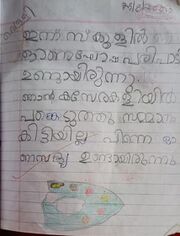 ഇന്ന് സ്കൂളിൽ
ഓണാഘോഷ പരിപാടി
ഉണ്ടായിരുന്നു.
ഞാൻ കസേരകളിയിൽ
പങ്കെടുത്തു സമ്മാനം
കിട്ടിയില്ല പിന്നെ
സദ്യ ഉണ്ടായിരുന്നു